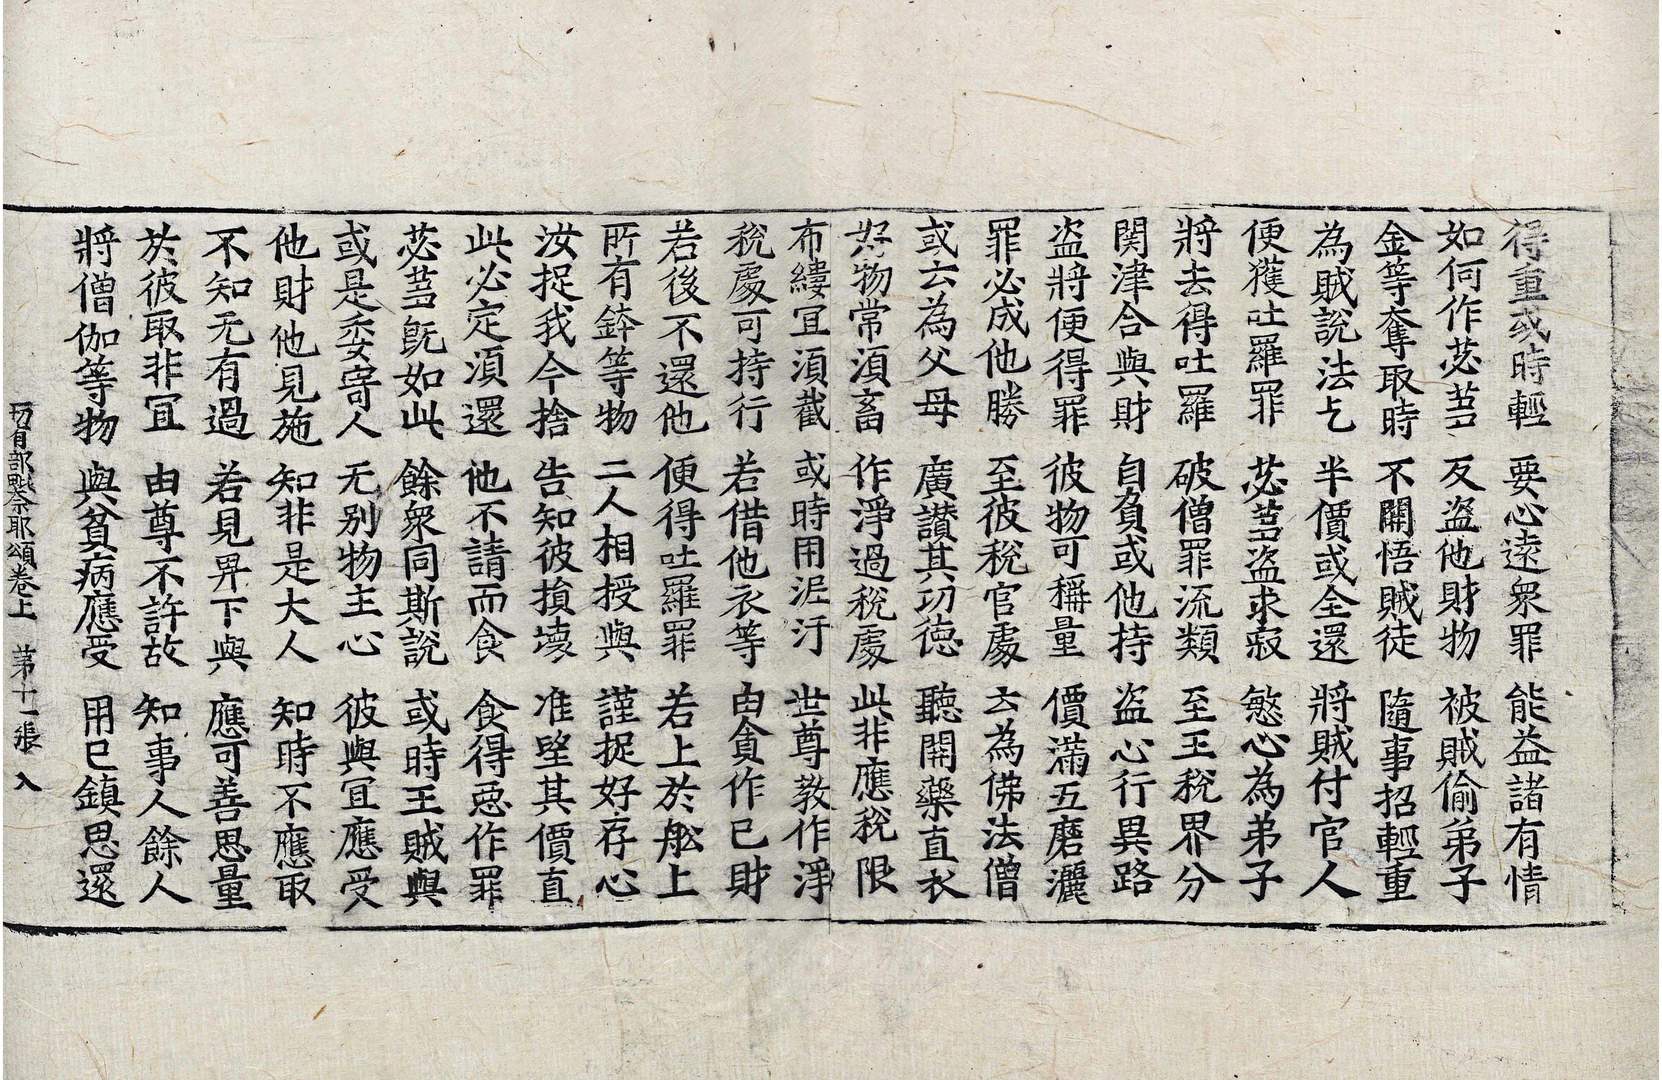 得重或時輕 要心遠衆罪 能益諸有情
如何作苾蒭 反盜他財物 被賊偷弟子
金等奪取時 不開悟賊徒 隨事招輕重
為賊說法乞 半價或全還 將賊付官人
便獲吐羅罪 苾蒭盜求寂 慜心為弟子
將去得吐羅 破僧罪流類 至王稅界分
関津合與財 自負或他持 盜心行異路
盜將便得罪 彼物可稱量 價滿五磨灑
罪必成他勝 至彼稅官處 云為佛法僧
或云為父母 廣讃其功徳 聽開藥直衣
好物常湏畜 作淨過稅處 此非應稅限
布縷冝湏截 或時用泥汙 世尊教作淨
稅處可持行 若借他衣等 由貪作已財
若後不還他 便得吐羅罪 若上於舩上
所有鉢等物 二人相授與 謹捉好存心
汝捉我今捨 告知彼損壞 准堅其價直
此必定湏還 他不請而食 食得惡作罪
苾蒭旣如此 餘衆同斯說 或時王賊與
或是委寄人 无別物主心 彼與冝應受
他財他見施 知非是大人 知時不應取
不知无有過 若見畀下與 應可善思量
於彼取非冝 由尊不許故 知事人餘人
將僧伽等物 與貧病應受 用已鎮思還
切有部毗奈耶頌卷上 苐十一張 入